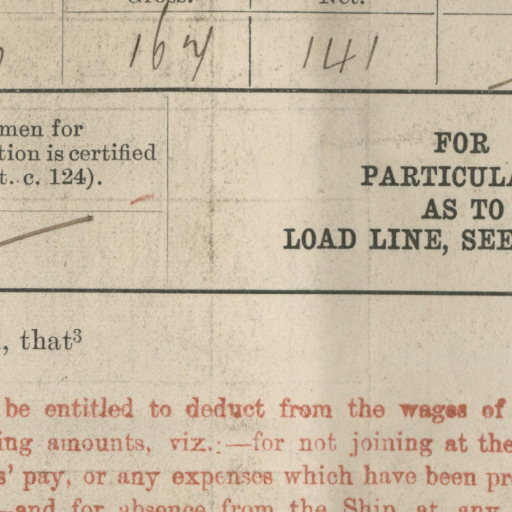 Gross. Net.
164 141
men for
tion is certified
t. c. 124).
FOR
PARTICULA
AS TO
LOAD LINE, SEE
, that³
be entitled to deduct from the wages of
ing amounts, viz.:—for not joining at the
s' pay, or any expenses which have been pr
—and for absence from the Ship at any